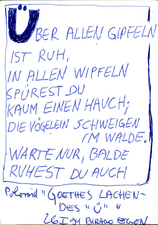 ÜBER ALLEN GIPFELN
IST RUH,
IN ALLEN WIPFELN
SPÜREST DU
KAUM EINEN HAUCH;
DIE VÖGELEIN SCHWEIGEN
IM WALDE.
WARTE NUR, BALDE
RUHEST DU AUCH
"GOETHES LACHEN-
DES "Ü" "
26 I 94